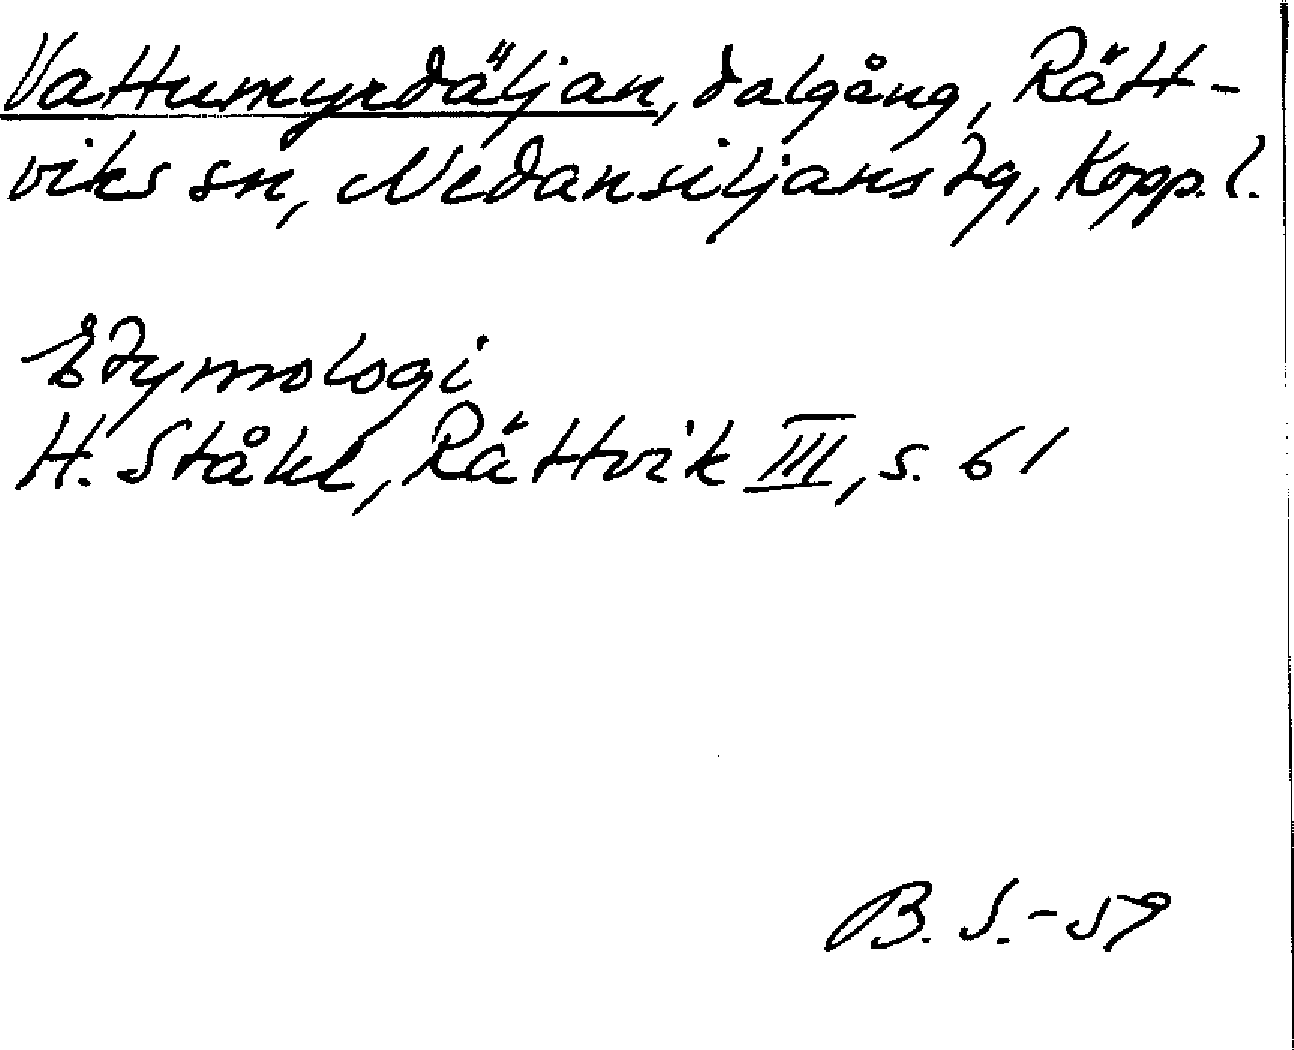 Vattumyrdäljan, dalgång, Rätt-
viks sn, Nedansiljans tg, Kopp. l.
Etymologi
H. Ståhl, Rättvik III, s. 61
B. S.-59